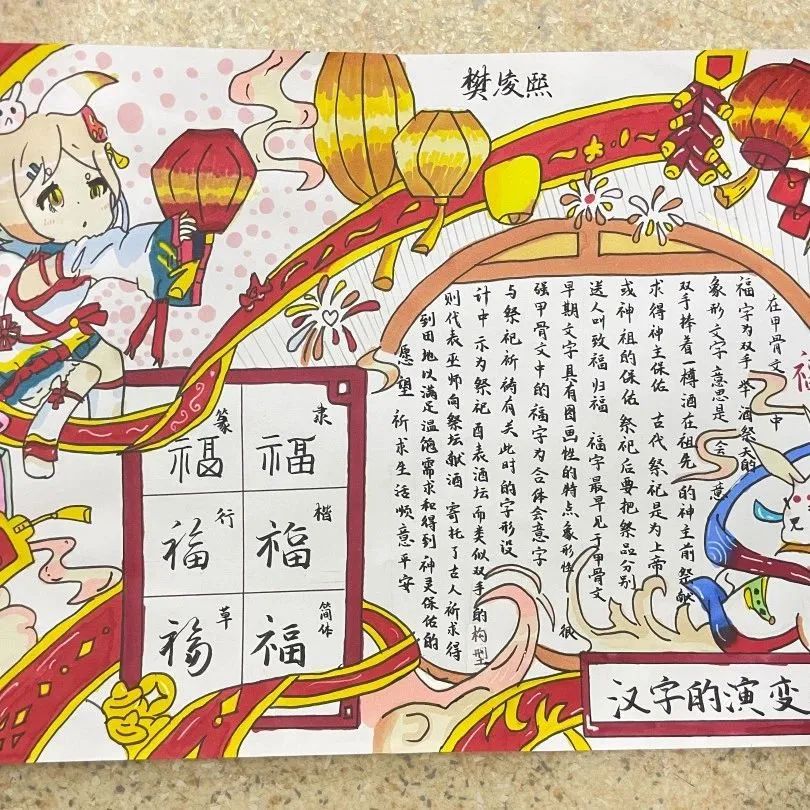 樊凌熙
在甲骨文中
福字为双手举酒祭天的
象形文字 意思是 会意
双手捧着一樽酒在祖先的神主前祭献
求得神主保佑 古代祭祀是为上帝
或神祖的保佑 祭祀后要把祭品分别
送人叫致福归福 福字最早见于甲骨文
早期文字具有图画性的特点象形性 很
强甲骨文中的福字为合体会意字
与祭祀祈祷有关此时的字形设
计中 示为祭祀 酉表酒坛 而类似双手的构型
则代表巫师向祭坛献酒 寄托了古人祈求得
到田地以满足温饱需求和得到神灵保佑的
愿望 祈求生活顺意平安
隶 福
篆 福
楷 福
行 福
简体 福
草 福
汉字的演变